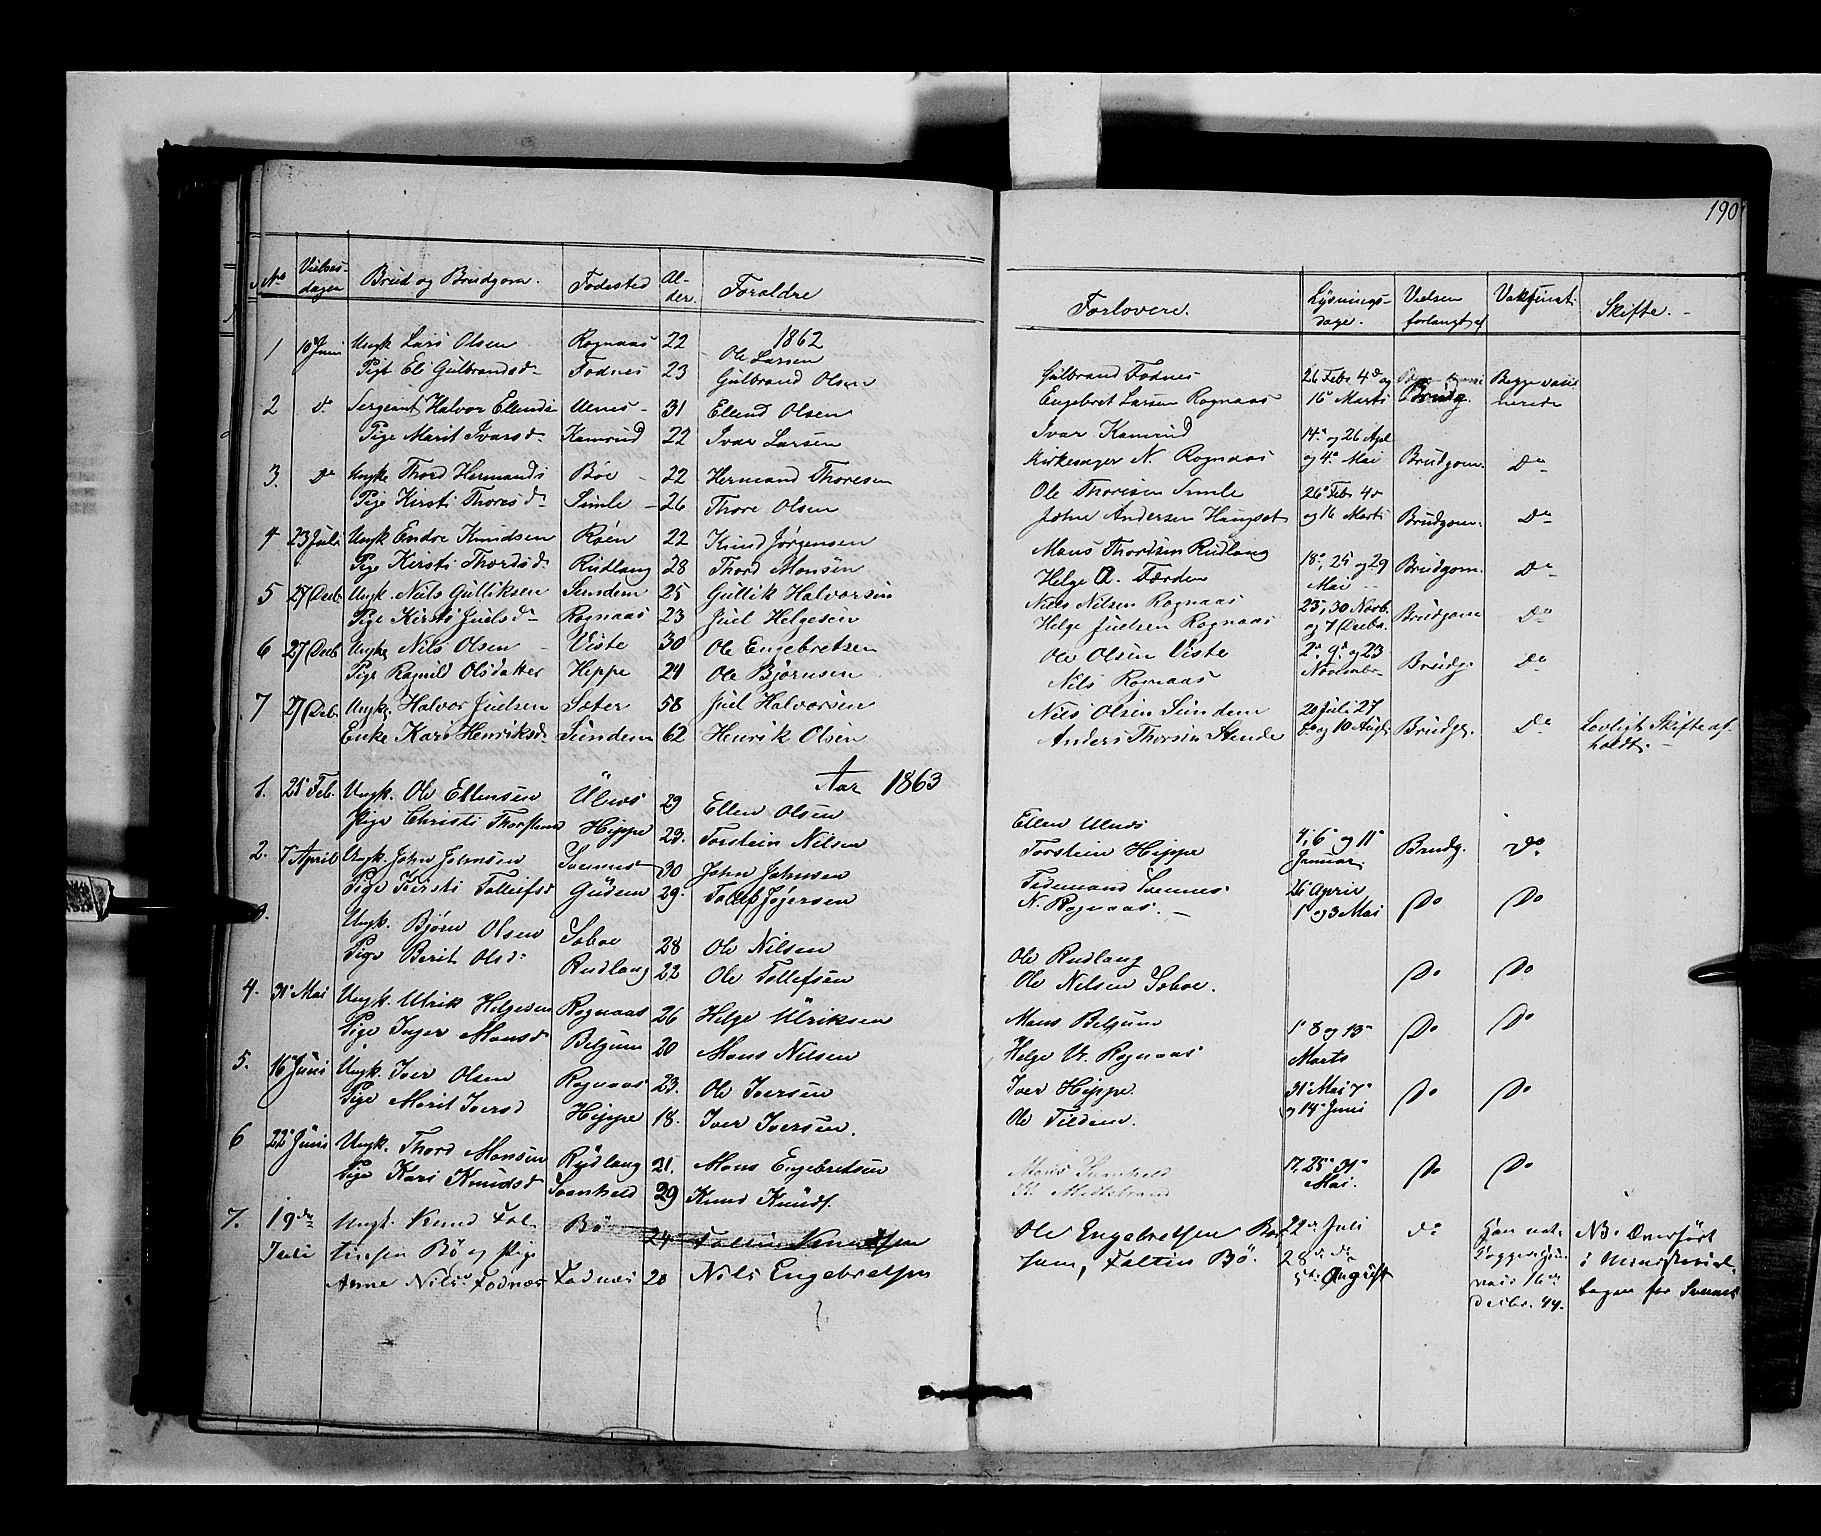 190
No Vielses- dagen Brud og Brudgom. Fødested Al- der. Foræld​re Forlovere. Lysnings- dage. Vielsen forlangt af Vaksinat. Skifte. -
1862
1 10de Juni Ungk Lars Olsen Rognaas 22 Ole Larsen Gulbrand Fodnes 26 Febr 4de og Begge vaxi
Pige Eli Gulbrandsd. Fodnes 23 Gulbrand Olsen Engebret Larsen Rognaas 16 Marts Brudg. nerede
2 do Sergeant Halvor Elends Ulnes 31 Elend Olsen Ivar Kamrud 14. og 26 Apl
Pige Marit Ivarsd. Kamrud 22 Ivar Larsen Kirkesager N. Rognaas og 4. Mai Brudgom. Do
3. Do Ungk. Thord Hermands Bøe 22 Hermand Thoresen Ole Thoresen Simle 26 Febr 4de
Pige Kirsti Thoresd. Simle 26 Thore Olsen John Andersen Haugset og 16 Marts Brudgom. Do
4 23 Juli Ungk Endre Knudsen Røen 22 Knud Jørgensen Mons Thordsen Rudlang 18, 25 og 29
Pige Kirsti Thordsd. Rudlang 28 Thord Monsen Helge A. Færden Mai Brudgom. Do
5 27 Decb. Ungk. Nils Gulliksen Sundem 25 Gullik Halvorsen Niels Nilsen Rognaas 23, 30 Novb.
Pige Kirsti Juelsd. Rognaas 23 Juel Helgesen Helge Juelsen Rognaas og 7 Decbr. Brudgom Do
6 27 Decb Ungk. Nils Olsen Viste 30 Ole Engebretsen Ole Olsen Viste 2. 9. og 23
Pige Ragnild Olsdatter Hippe 24 Ole Bjørnsen Nils Rognaas November Brudg. Do
7 27 Decb. Ungk. Halvor Juelsen Sæter 58 Juel Halvorsen Nils Olsen Sundem 20 Juli 27
Enke Kari Henriksd. Sundem 62 Henrik Olsen Anders Thorsen Stende og 10 Augt. Brudg. Do Lovligt Skifte af-
holdt. -
Aar 1863
1. 25 Feb. Ungk. Ole Ellensen Ulnes 29 Ellen Olsen Ellen Ulnes 4, 6 og 11
Pige Christi Thorstensd Hippe 23. Torstein Nilsen Torstein Hippe Januar. Brudg. Do
2. 7 April Ungk. John Johnsen Svennes 30 John Johnsen Tidemand Svennes. 26 April
Pige Kirsti Tolleifsd Gudem 29. N. Rognaas. - 1 og 3 Mai Do Do
3. Ungk. Bjørn Olsen Soboe 28 Ole Nilsen Ole Rudlang
Pige Berit Olsd. Rudlang 22 Ole Tollefsen Ole Nilsen Soboe. Do Do
4. 31 Mai Ungk. Ulrik Helgesen Rognaas 26 Helge Ulriksen Mons Belgum 1. 8 og 15
Pige Inger Monsd. Belgum 20 Mons Nilsen Helge U. Rognaas Marts Do Do
5. 16 Juni Ungk. Iver Olsen Rognaas 23. Ole Iversen Iver Hippe. 31 Mai 7
Pige Marit Iversd Hippe 18. Iver Iversen. Ole Tildem. og 14 Juni Do Do
6 22 Juni Ungk. Thord Monsen Rudlang 21. Mons Engebretsen Mons Svanheld 17, 25 31
Pige Kari Knudsd Svanheld 29 Knud Knuds. K. Midtstrand Mai. Do Do
7. 19de Ungk. Knud Fol- Bø 24 Foltin Knudsen Ole Engebretsen Bø 22de Juli do Han vak-
Juli tinsen Bø og Pige sam, Foltin Bø. 28de do N3. Overført
Anne Nilsd. Fodnæs Fodnæs 20 Nils Engebretsen 5te August 16de i Ministerial-
Decbr. 44. bogen for Svennes